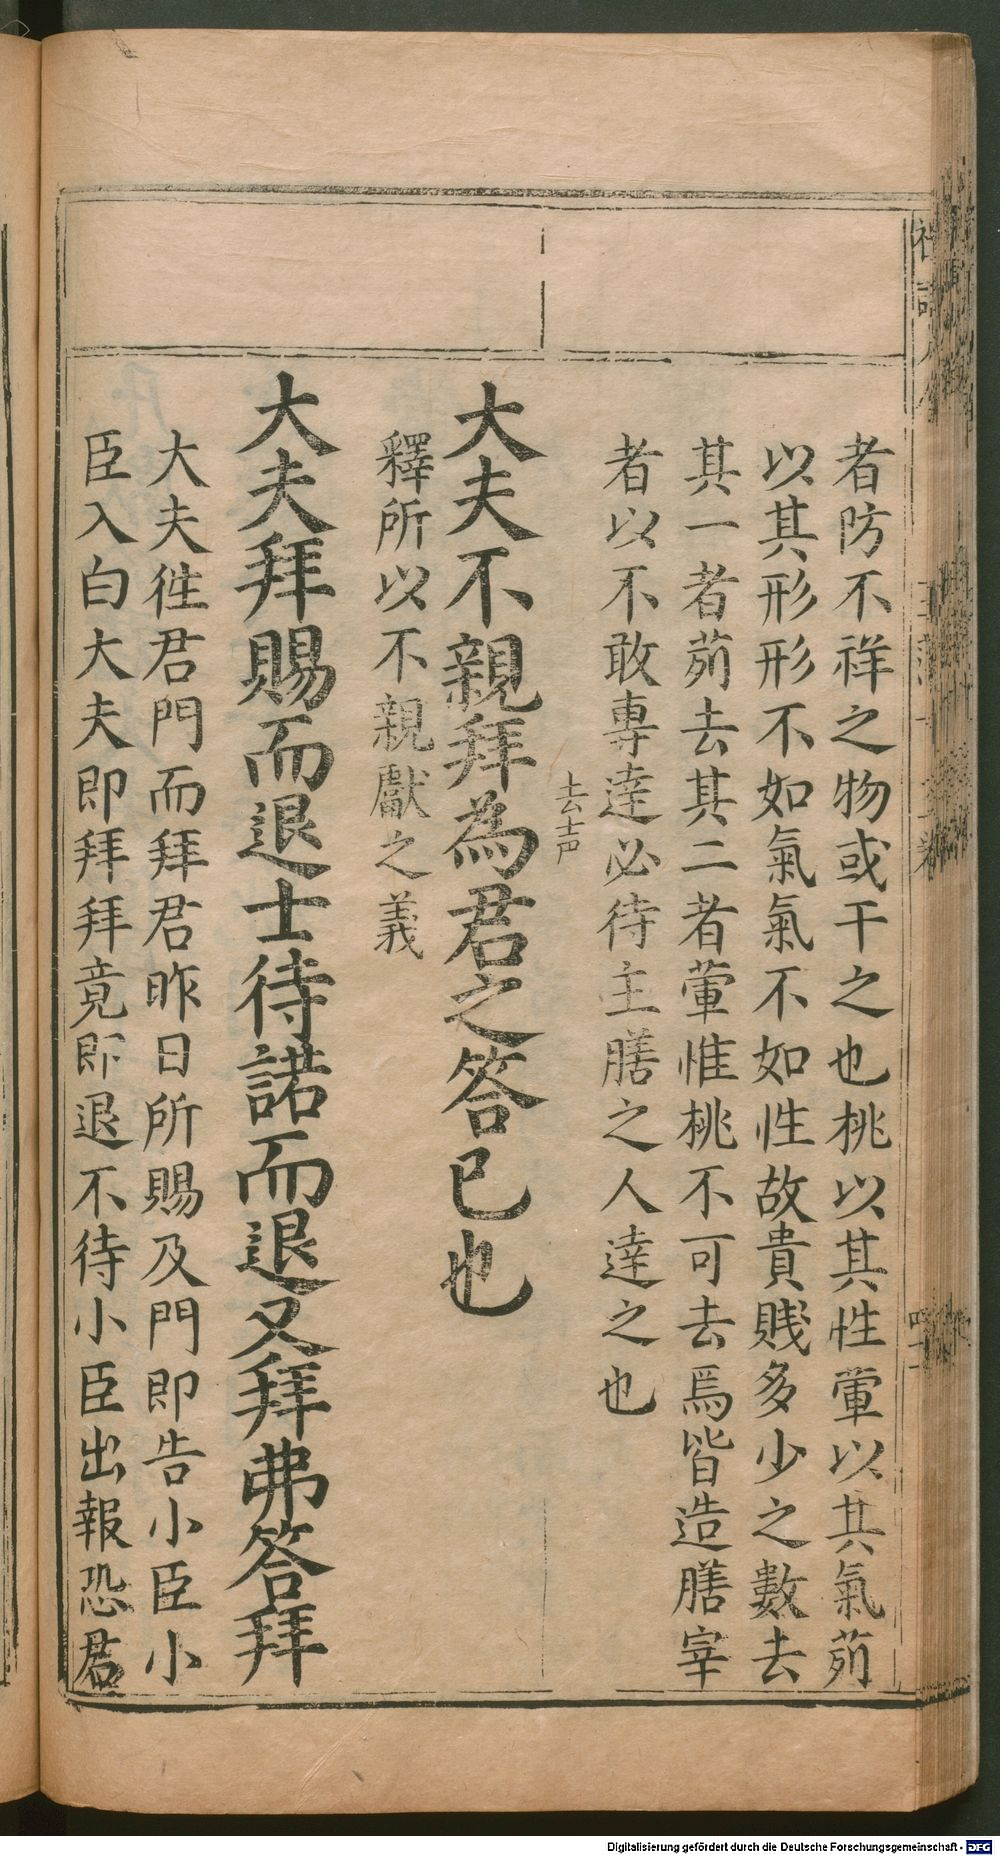 者防不祥之物或干之也桃以其性葷以其氣茢
以其形形不如氣氣不如性故貴賤多少之數去
其一者茢去其二者葷惟桃不可去焉皆造膳宰
者以不敢專達必待主膳之人達之也
去声
大夫不親拜為君之答已也
釋所以不親獻之義
大夫拜賜而退士待諾而退又拜弗答拜
大夫徃君門而拜君昨日所賜及門即告小臣小
臣入白大夫即拜拜竟即退不待小臣出報恐君
Digitalisierung gefördert durch die Deutsche Forschungsgemeinschaft - DFG